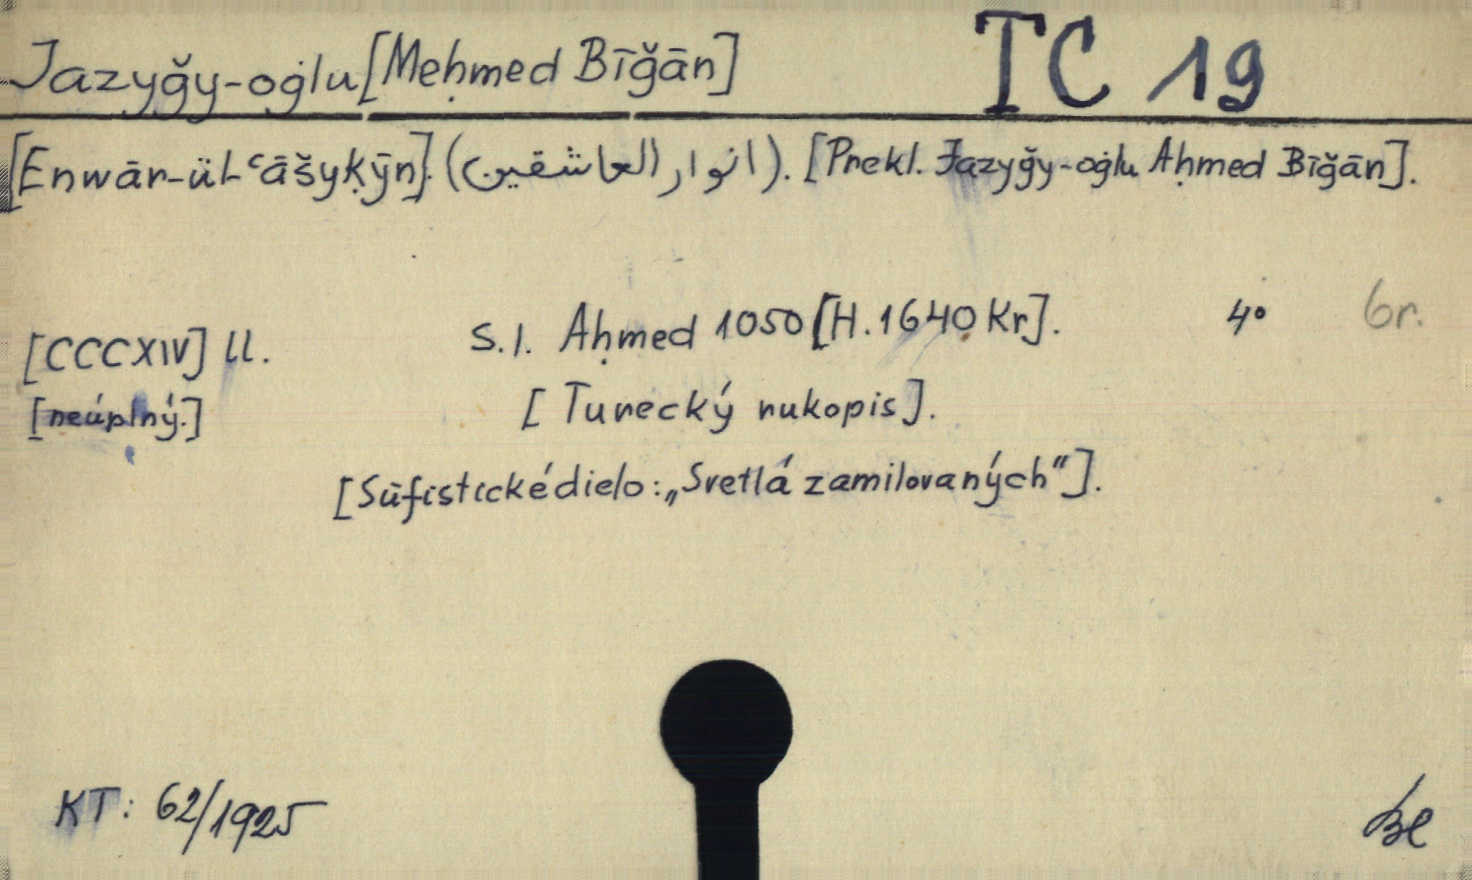 Jazyǧy-oġlu [Meḥmed Bīǧān] TC 19
[Enwār-ül-ʿāšyḳȳn]. (انوار العاشقين). [Prekl. Jazyǧy-oġlu Aḥmed Bīǧān].
[CCCXIV] ll. S.l. Aḥmed 1050 [H. 1640 Kr]. 4° 6r.
[neúplný.] [Turecký rukopis].
[Sūfistické dielo: „Svetlá zamilovaných“].
KT: 62/1925